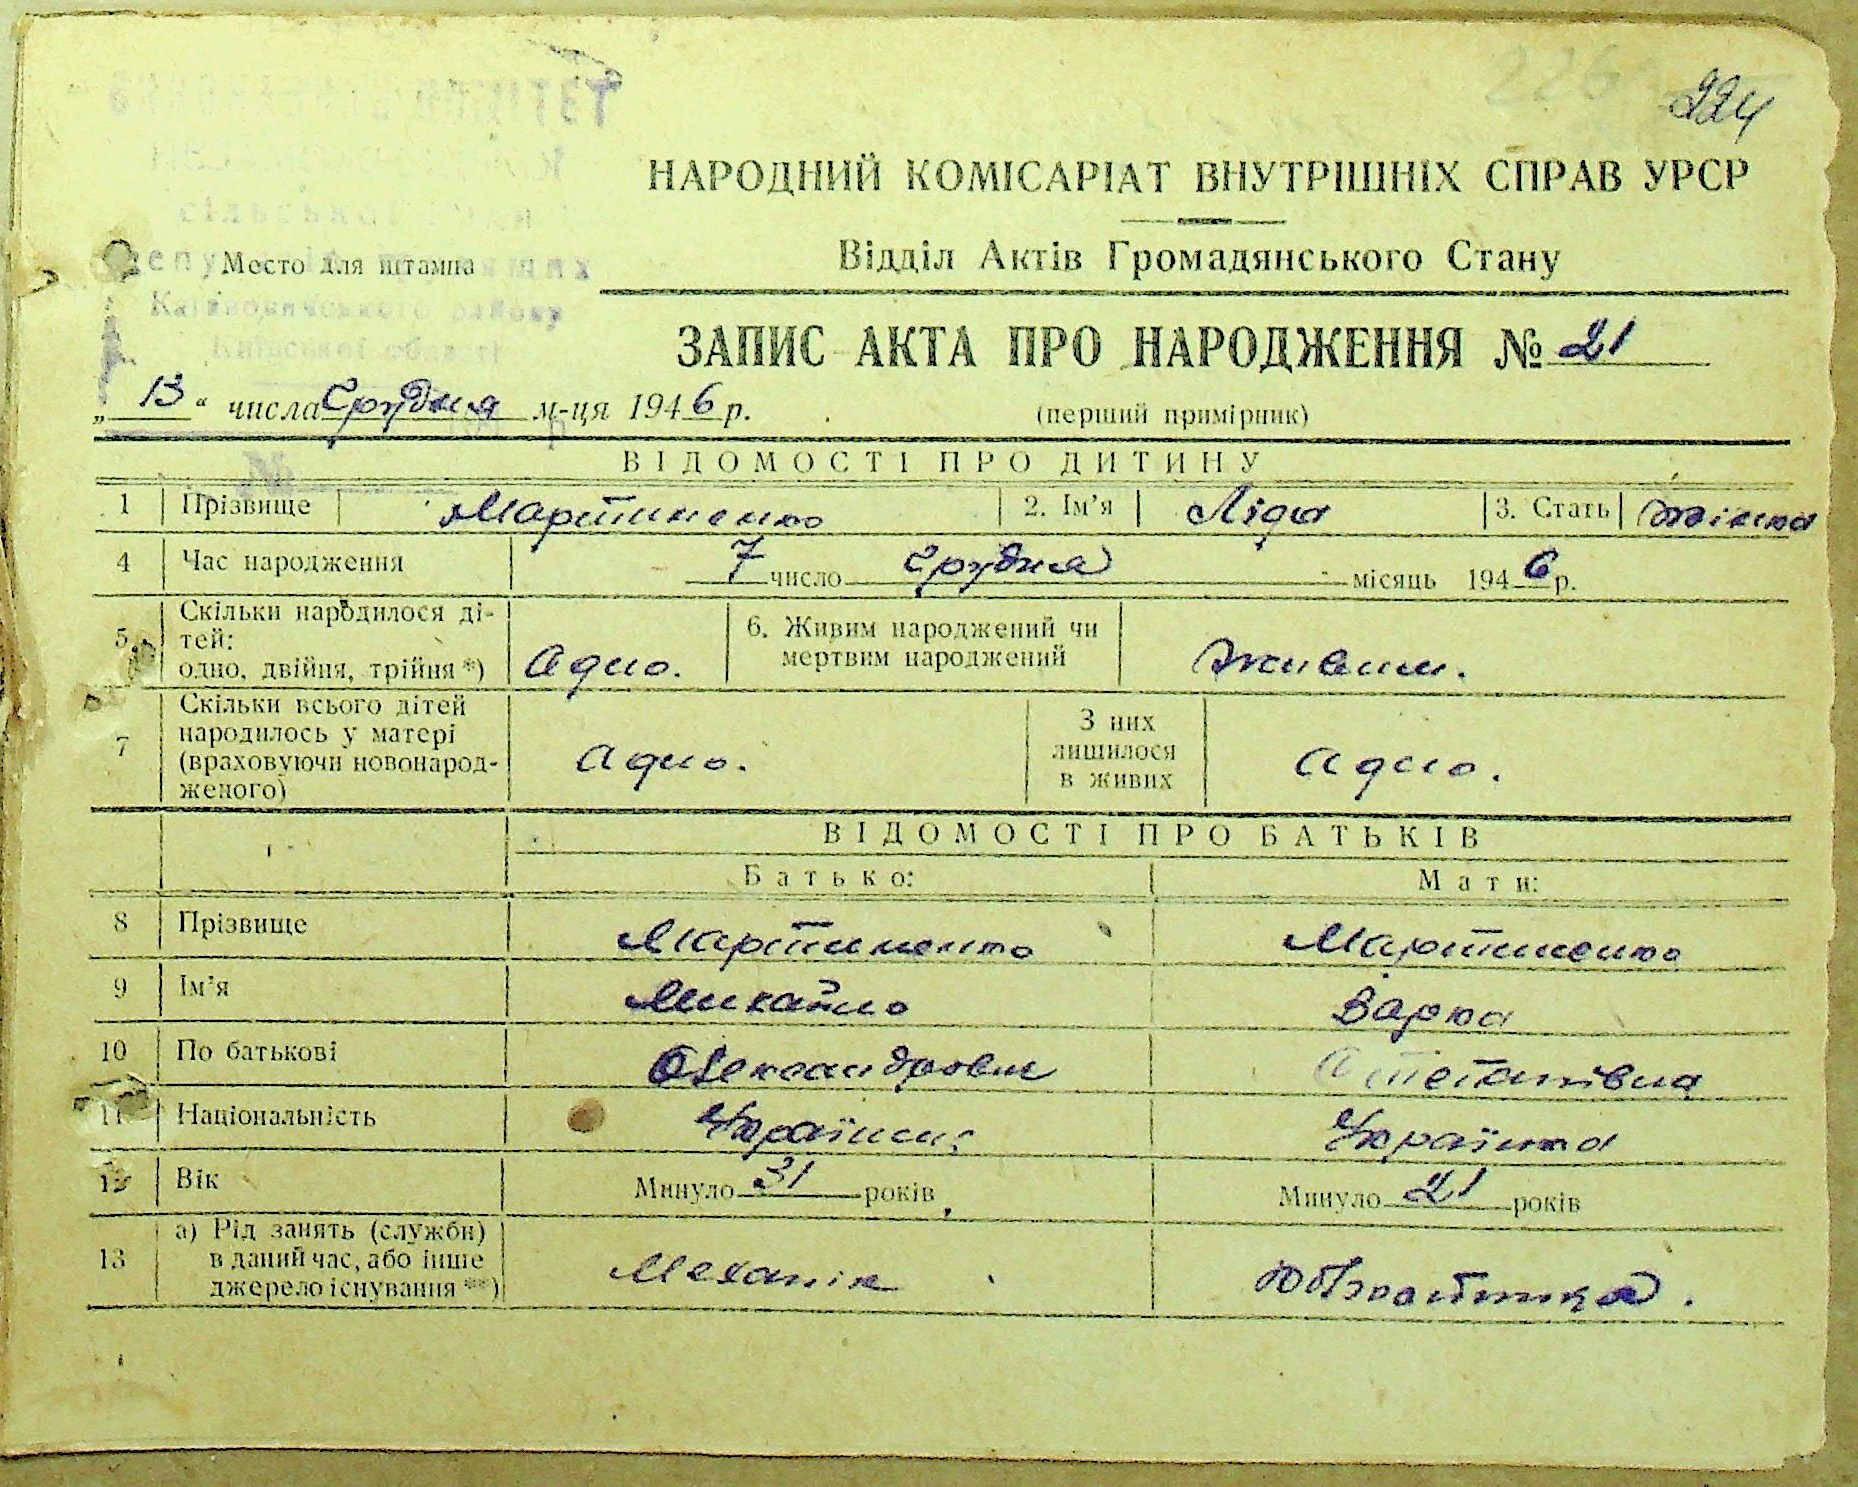 224
НАРОДНИЙ КОМІСАРІАТ ВНУТРІШНІХ СПРАВ УРСР
Відділ Актів Громадянського Стану
Место для штампа
Київської області
ЗАПИС АКТА ПРО НАРОДЖЕННЯ № 21
„ 13 “ числа Грудня м-ця 1946 р.
(перший примірник)
ВІДОМОСТІ ПРО ДИТИНУ
1 Прізвище Мартиненко 2. Ім’я Ліда 3. Стать жінка
4 Час народження 7 число Грудня місяць 1946 р.
5 Скільки народилося ді-
тей:
одно, двійня, трійня *) Адно. 6. Живим народжений чи
мертвим народжений Живим.
7 Скільки всього дітей
народилось у матері
(враховуючи новонарод-
женого) Адно. З них
лишилося
в живих Адно.
ВІДОМОСТІ ПРО БАТЬКІВ
Батько: Мати:
8 Прізвище Мартиненко Мартиненко
9 Ім’я Михайло Варка
10 По батькові Олександрович Степанівна
11 Національність Українець Українка
12 Вік Минуло 31 років Минуло 21 років
13 а) Рід занять (служби)
в даний час, або інше
джерело існування **) Механік